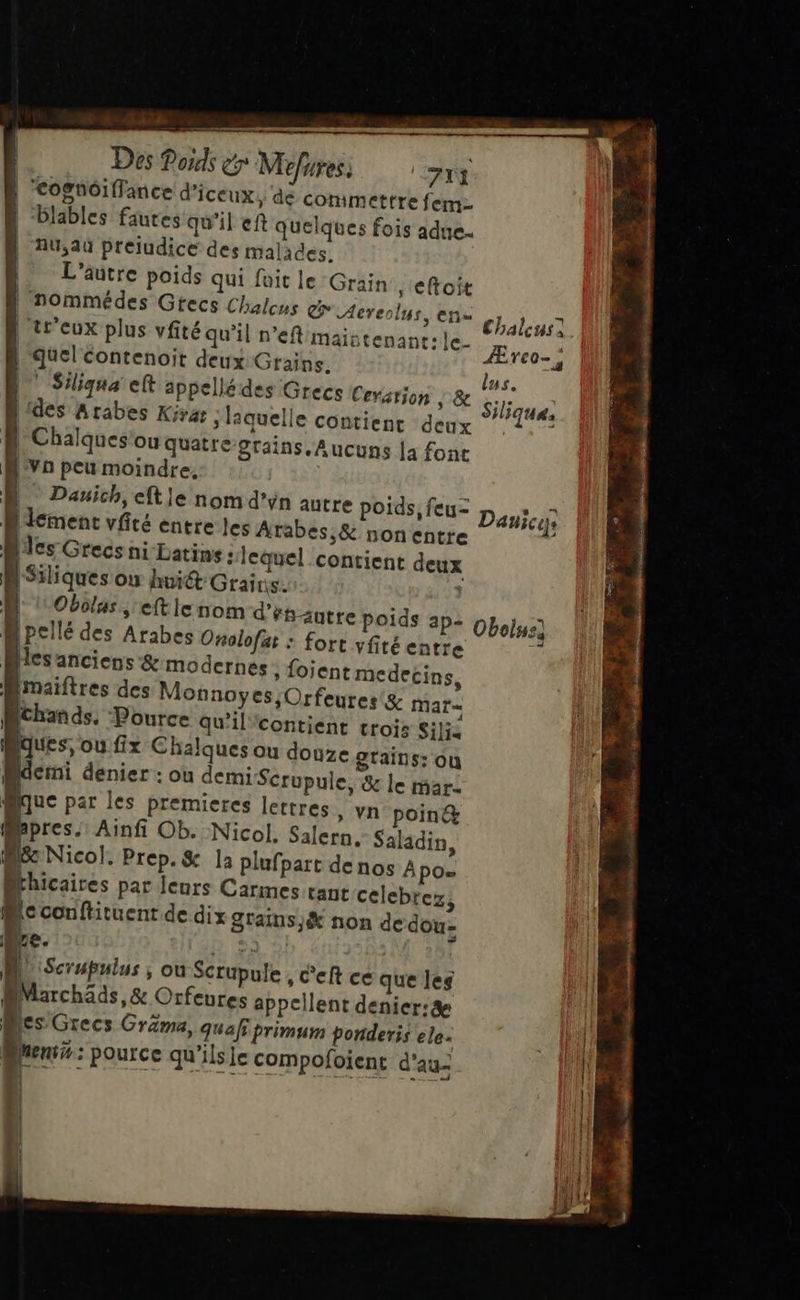 Des Poids & Mesures. 711
cognoissance d'iceux, de commettre sem-
blables fautes qu'il est quelques fois adue-
nu, au preiudice des malades.
L'autre poids qui suit le Grain, estoit
nommé des Grecs Chalcus & Aereolus, en-
tr'eux plus vsité qu'il n'est maintenant: le-
quel contenoit deux Grains.
Chalcus.
Ærco-
lus.
Siliqua est appellé des Grecs Ceration, &
des Arabes Kirat; laquelle contient deux
Chalques ou quatre grains. Aucuns la font
vn peu moindre.
Siliqua.
Danich, est le nom d'vn autre poids, seu-
lement vsité entre les Arabes, & non entre
les Grecs ni Latins: lequel contient deux
Siliques ou huict Grains.
Danich
Obolus, est le nom d'vn autre poids ap-
pellé des Arabes Onolosat: fort vsité entre
les anciens & modernes, soient medecins,
maistres des Monnoyes, Orfeures & mar-
chands. Pource qu'il contient trois Sili-
ques, ou six Chalques ou douze grains: ou
demi denier: ou demi Scrupule, & le mar-
que par les premieres lettres, vn poinct
apres. Ainsi Ob. Nicol. Salern. Saladin,
& Nicol. Prep. & la pluspart de nos Apo-
thicaires par leurs Carmes tant celebrez,
le constituent de dix grains, & non de dou-
ze.
Obolus
Scrupulus, ou Scrupule, c'est ce que les
Marchāds, & Orfeures appellent denier: &
les Grecs Grāma, quasi primum ponderis ele-
mentū: pource qu'ils le composoient d'au-